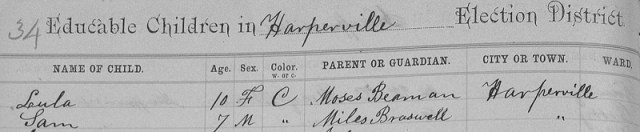 34 Educable Children in Harperville Election District
NAME OF CHILD. Age. Sex. Color. w. or c. PARENT OR GUARDIAN. CITY OR TOWN. WARD.
Lula 10 F C Moses Beaman Harperville
Sam 7 M " Miles Braswell "